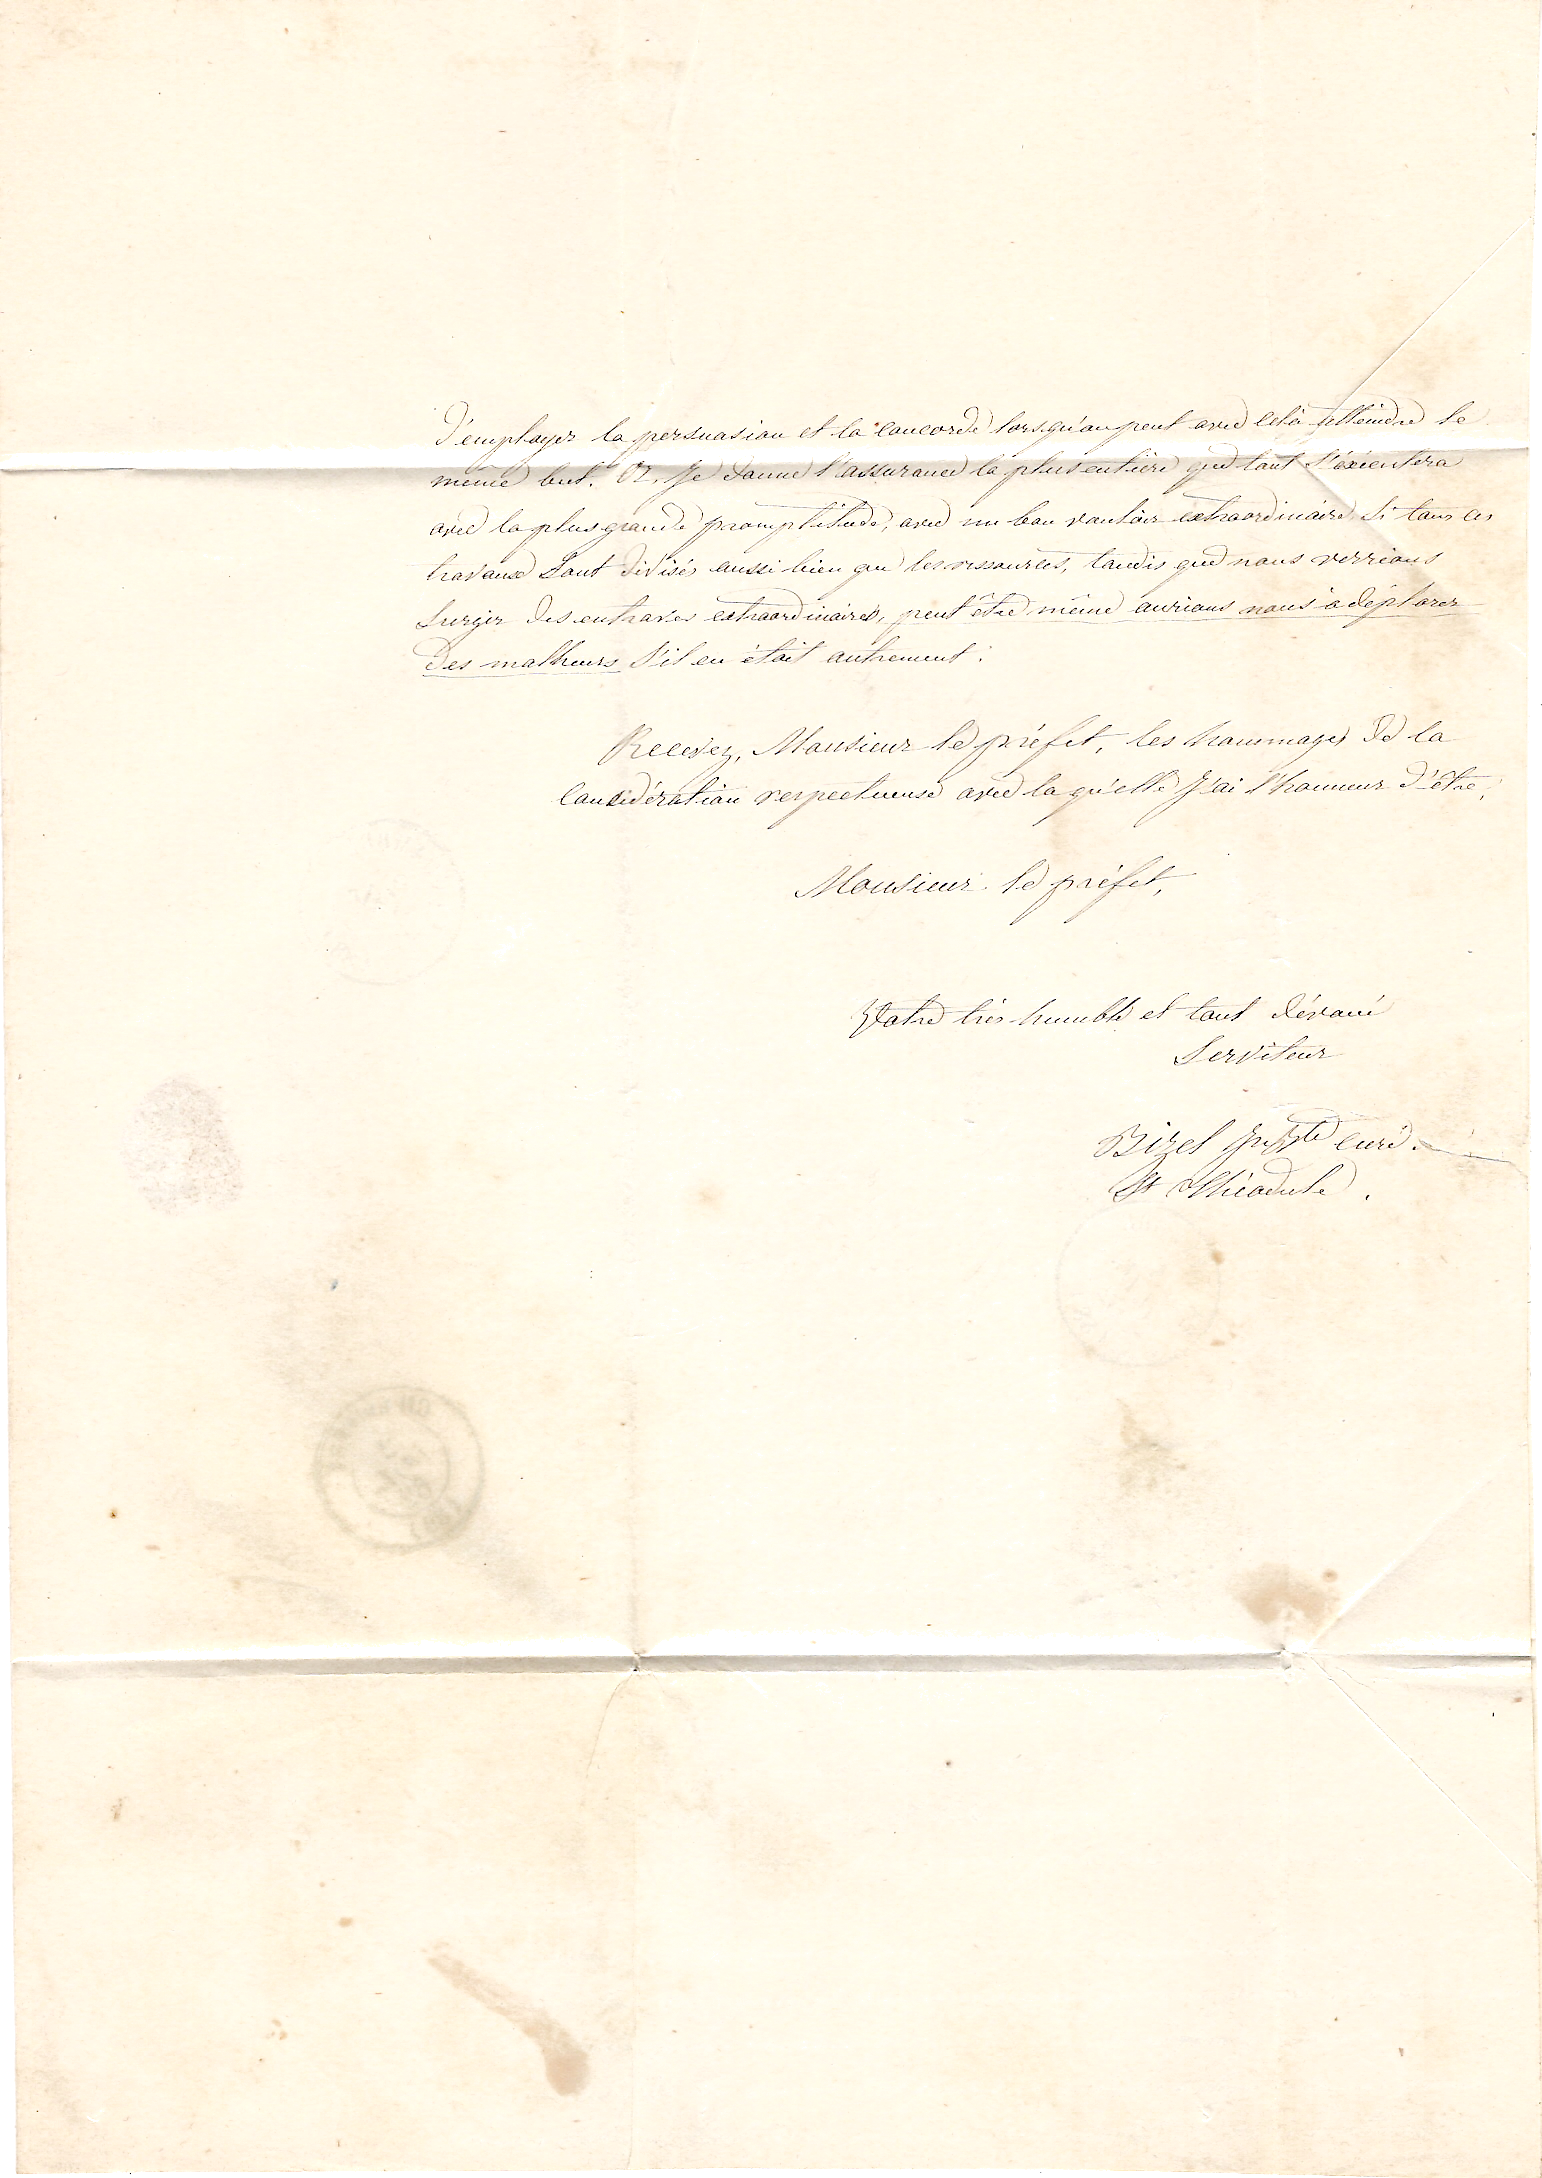 d'employer la persuasion et la concorde lorsqu'on peut avec cela atteindre le
même but. Or, je donne l'assurance la plus entière que tout s'exécutera
avec la plus grande promptitude, avec un bon vouloir extraordinaire, si tous ces
travaux sont divisés aussi bien que les ressources, tandis que nous verrions
surgir des entraves extraordinaires, peut être même aurions nous à déplorer
des malheurs s'il en était autrement.
Recevez, Monsieur le préfet, les hommages de la
considération respectueuse avec laqu'elle j'ai l'honneur d'être,
Monsieur le préfet,
Votre très-humble et tout dévoué
serviteur
Bizel curé
St Théodule.